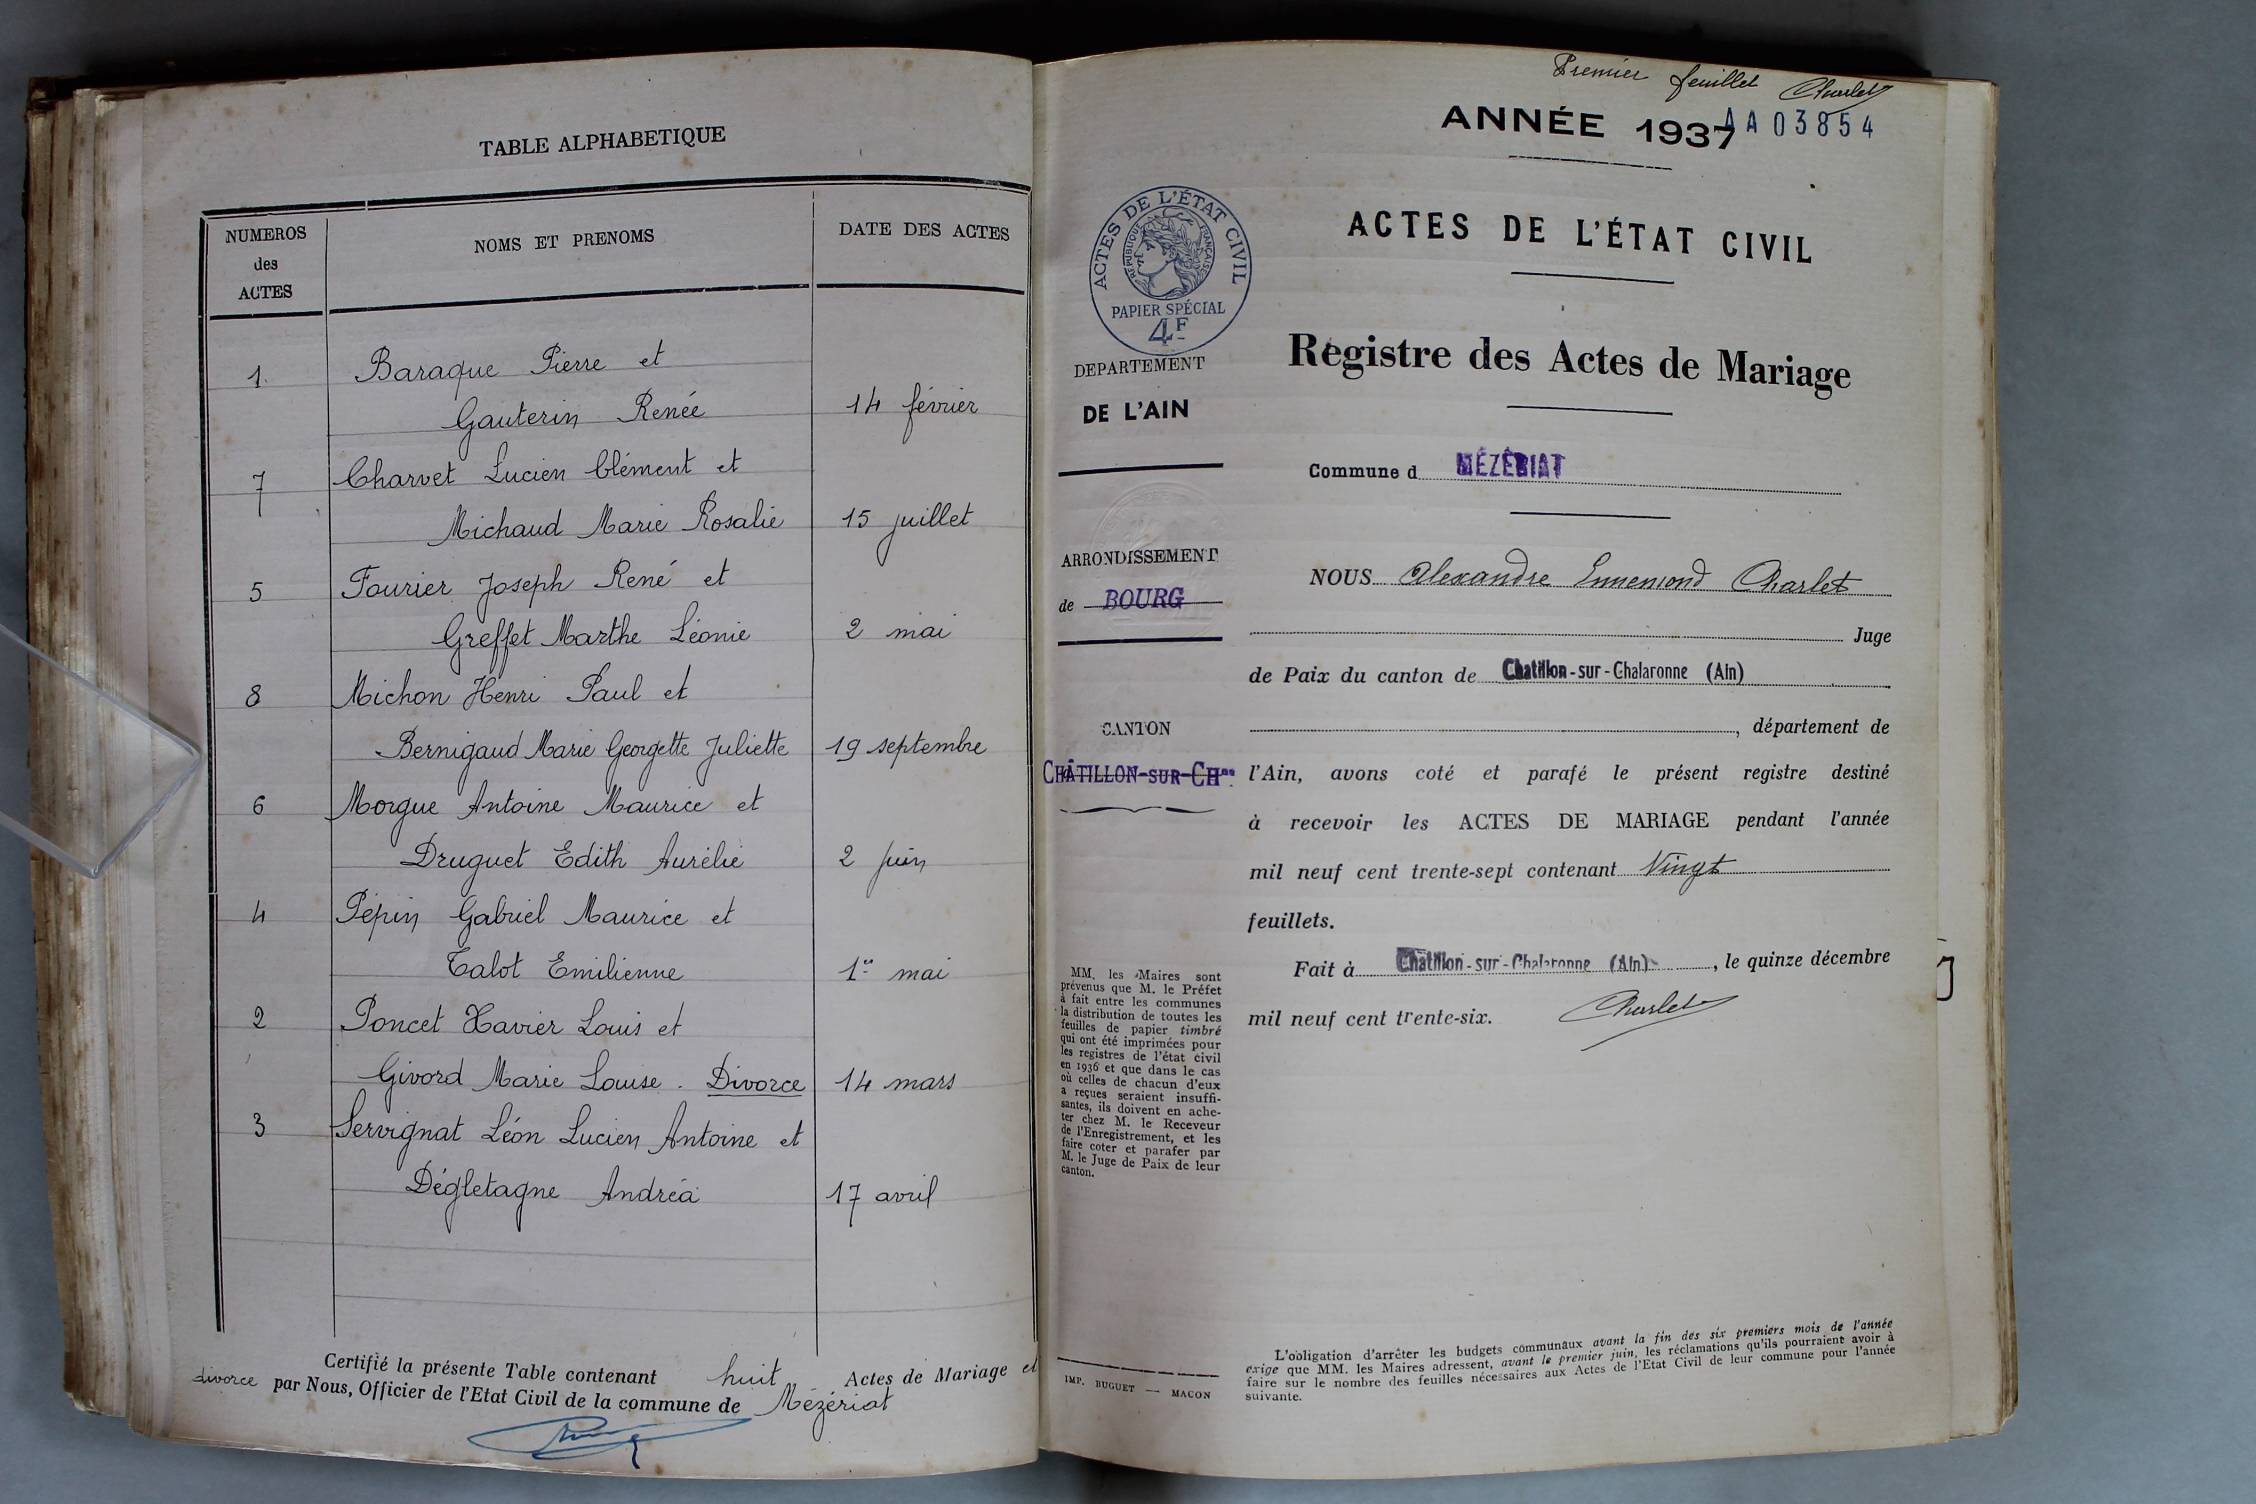 TABLE ALPHABETIQUE
NUMEROS
des
ACTES
NOMS ET PRENOMS
DATE DES ACTES
1. Baraque Pierre et
Gauterin Renée 14 février
7 Charvet Lucien Clément et
Michaud Marie Rosalie 15 juillet
5 Fourier Joseph René et
Greffet Marthe Léonie 2 mai
8 Michon Henri Paul et
Bernigaud Marie Georgette Juliette 19 septembre
6 Morgue Antoine Maurice et
Druguet Edith Aurélie 2 juin
4 Pépin Gabriel Maurice et
Talot Emilienne 1er mai
2 Poncet Xavier Louis et
Givord Marie Louise. Divorce 14 mars
3 Servignat Léon Lucien Antoine et
Dégletagne Andréa 17 avril
Certifié la présente Table contenant huit Actes de Mariage et
divorce par Nous, Officier de l'Etat Civil de la commune de Mézériat
Premier feuillet Charlet
ANNÉE 1937
AA 03854
ACTES DE L'ÉTAT CIVIL
RÉPUBLIQUE FRANÇAISE
PAPIER SPÉCIAL
4F
ACTES DE L'ÉTAT CIVIL
Registre des Actes de Mariage
DEPARTEMENT
DE L'AIN
Commune d MÉZÉRIAT
ARRONDISSEMENT
de BOURG
CANTON
CHÂTILLON-SUR-CHne
NOUS Alexandre Ennemond Charlet
Juge
de Paix du canton de Chatillon-sur-Chalaronne (Ain)
, département de
l'Ain, avons coté et parafé le présent registre destiné
à recevoir les ACTES DE MARIAGE pendant l'année
mil neuf cent trente-sept contenant Vingt
feuillets.
Fait à Chatillon-sur-Chalaronne (Ain) , le quinze décembre
mil neuf cent trente-six. Charlet
MM. les Maires sont
prévenus que M. le Préfet
à fait entre les communes
la distribution de toutes les
feuilles de papier timbré
qui ont été imprimées pour
les registres de l'état civil
en 1936 et que dans le cas
où celles de chacun d'eux
a reçues seraient insuffi-
santes, ils doivent en ache-
ter chez M. le Receveur
de l'Enregistrement, et les
faire coter et parafer par
M. le Juge de Paix de leur
canton.
IMP. BUGUET — MACON
L'obligation d'arrêter les budgets communaux avant la fin des six premiers mois de l'année
exige que MM. les Maires adressent, avant le premier juin, les réclamations qu'ils pourraient avoir à
faire sur le nombre des feuilles nécessaires aux Actes de l'Etat Civil de leur commune pour l'année
suivante.